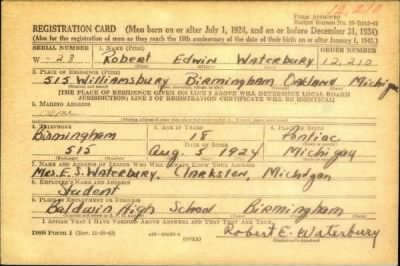 12,210
Form Approved
REGISTRATION CARD—(Men born on or after July 1, 1924, and on or before December 31, 1924)
(Also for the registration of men as they reach the 18th anniversary of the date of their birth on or after January 1, 1943.)
SERIAL NUMBER 1. NAME (Print) ORDER NUMBER
W -28 Robert Edwin Waterbury 12,210
2. PLACE OF RESIDENCE (Print)
515 Williamsbury Birmingham Oakland Michigan
[THE PLACE OF RESIDENCE GIVEN ON LINE 2 ABOVE WILL DETERMINE LOCAL BOARD
JURISDICTION; LINE 2 OF REGISTRATION CERTIFICATE WILL BE IDENTICAL]
3. MAILING ADDRESS
4. TELEPHONE 5. AGE IN YEARS 6. PLACE OF BIRTH
Birmingham 18 Pontiac
DATE OF BIRTH
515 Aug 5 1924 Michigan
7. NAME AND ADDRESS OF PERSON WHO WILL ALWAYS KNOW YOUR ADDRESS
Mrs. E. S. Waterbury. Clarkston, Michigan
8. EMPLOYER'S NAME AND ADDRESS
Student
9. PLACE OF EMPLOYMENT OR BUSINESS
Baldwin High School Birmingham
I AFFIRM THAT I HAVE VERIFIED ABOVE ANSWERS AND THAT THEY ARE TRUE.
DSS Form 1 (OVER) Robert E. Waterbury